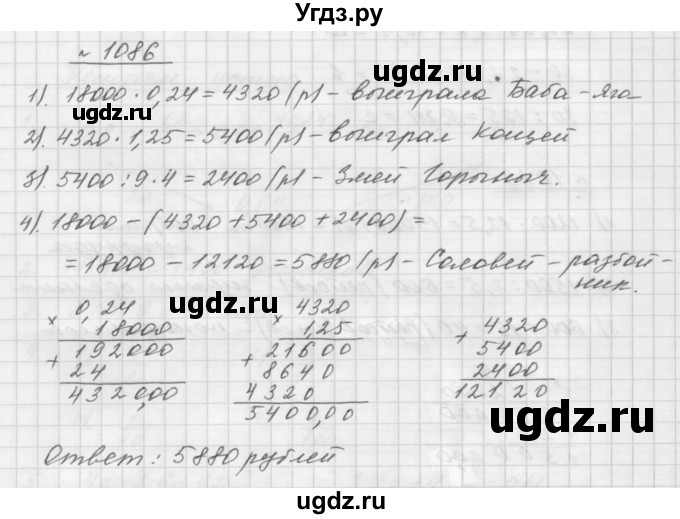 Угдз.ру
№ 1086
ugdz.ru
1). 18000 · 0,24 = 4320 (р) – выиграла Баба – Яга
2). 4320 · 1,25 = 5400 (р) – выиграл Кощей
ugdz.ru
3). 5400 : 9 · 4 = 2400 (р) – Змей Горыныч.
4). 18000 – (4320 + 5400 + 2400) =
ugdz.ru
= 18000 – 12120 = 5880 (р) – Соловей – разбой-
ник.
ugdz.ru
× 0,24
18000
+ 192000
24
4320,00
× 4320
1,25
+ 21600
8640
4320
5400,00
+ 4320
5400
2400
12120
ugdz.ru
ugdz.ru
Ответ: 5880 рублей
ugdz.ru